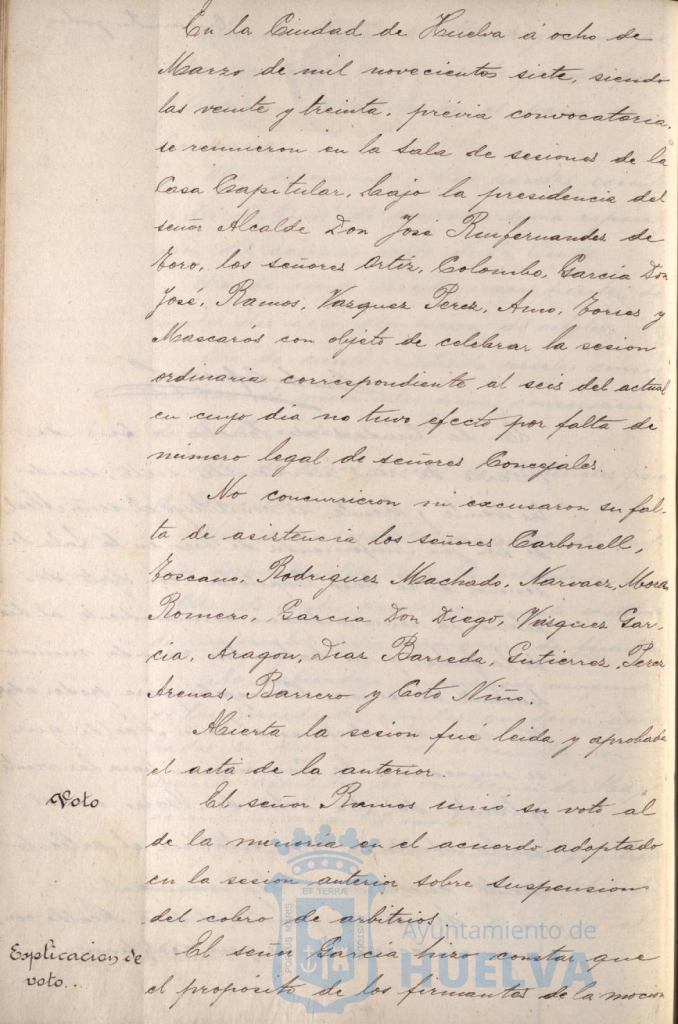 En la Ciudad de Huelva á ocho de
Marzo de mil novecientos siete, siendo
las veinte y treinta, prévia convocatoria,
se reunieron en la Sala de sesiones de la
Casa Capitular, bajo la presidencia del
señor Alcalde Don José Ruifernandez de
Toro, los señores Ortiz, Colombo, Garcia Don
José, Ramos, Vazquez Perez, Amo, Torres y
Mascarós con objeto de celebrar la sesion
ordinaria correspondiente al seis del actual
en cuyo dia no tuvo efecto por falta de
número legal de señores Concejales.
No concurrieron ni excusaron su fal-
ta de asistencia los señores Carbonell,
Toscano, Rodriguez Machado, Narvaez, Mora
Romero, Garcia Don Diego, Vazquez Gar-
cia, Aragon, Diaz Barreda, Gutierrez, Perez
Arenas, Barrero y Coto Niño.
Abierta la sesion fué leida y aprobada
el acta de la anterior.
Voto
El señor Ramos unió su voto al
de la menoria en el acuerdo adoptado
en la sesion anterior sobre suspension
del cobro de arbitrios.
Esplicacion de
voto..
El señor Garcia hizo constar que
el propósito de los firmantes de la mocion
PORTUS MARIS ET TERRÆ CUSTODIA
Ayuntamiento de
HUELVA